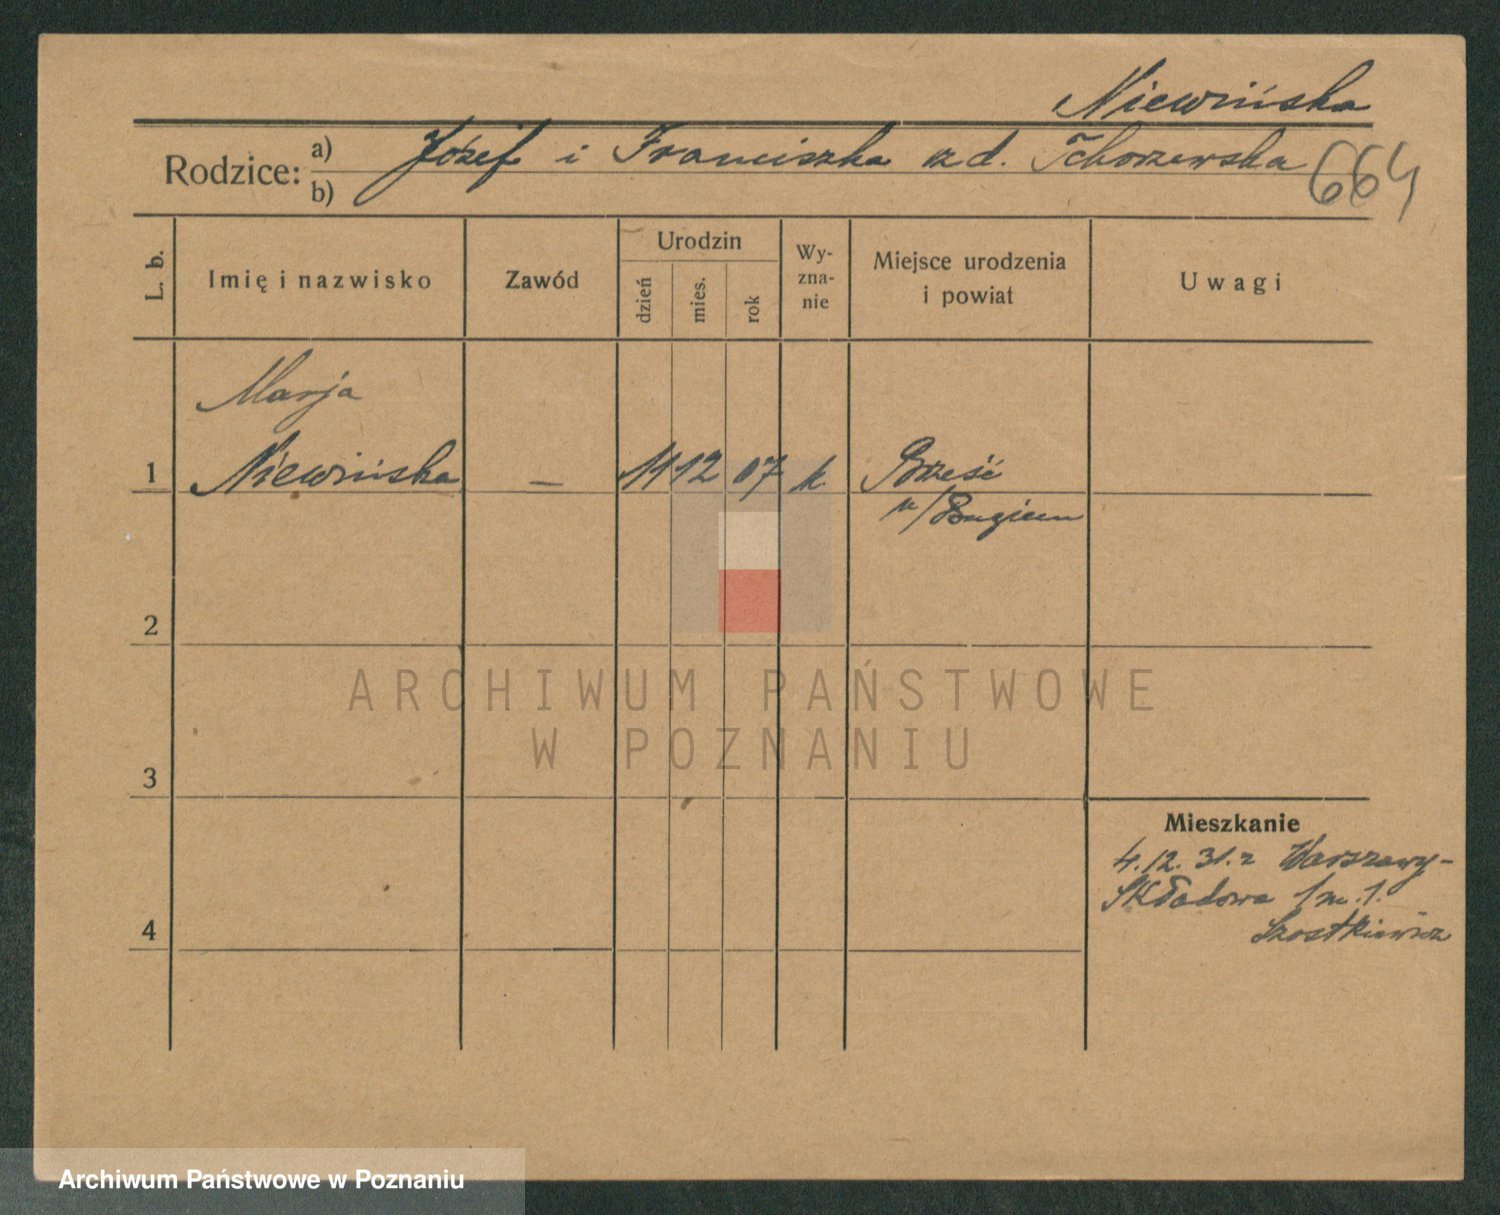 Niewińska
Rodzice: a) Józef i Franciszka z d. Tchorzewska 664
b)
L. b.
Imię i nazwisko
Zawód
Urodzin
dzień
mies.
rok
Wy-
zna-
nie
Miejsce urodzenia
i powiat
Uwagi
Marja
1 Niewińska — 11 12 07 k. Brześć
n/Bugiem
2
ARCHIWUM PAŃSTWOWE
W POZNANIU
3
Mieszkanie
4.12.31. z Warszawy-
Składowa 1 m. 1.
Szostkiewicz
4
Archiwum Państwowe w Poznaniu